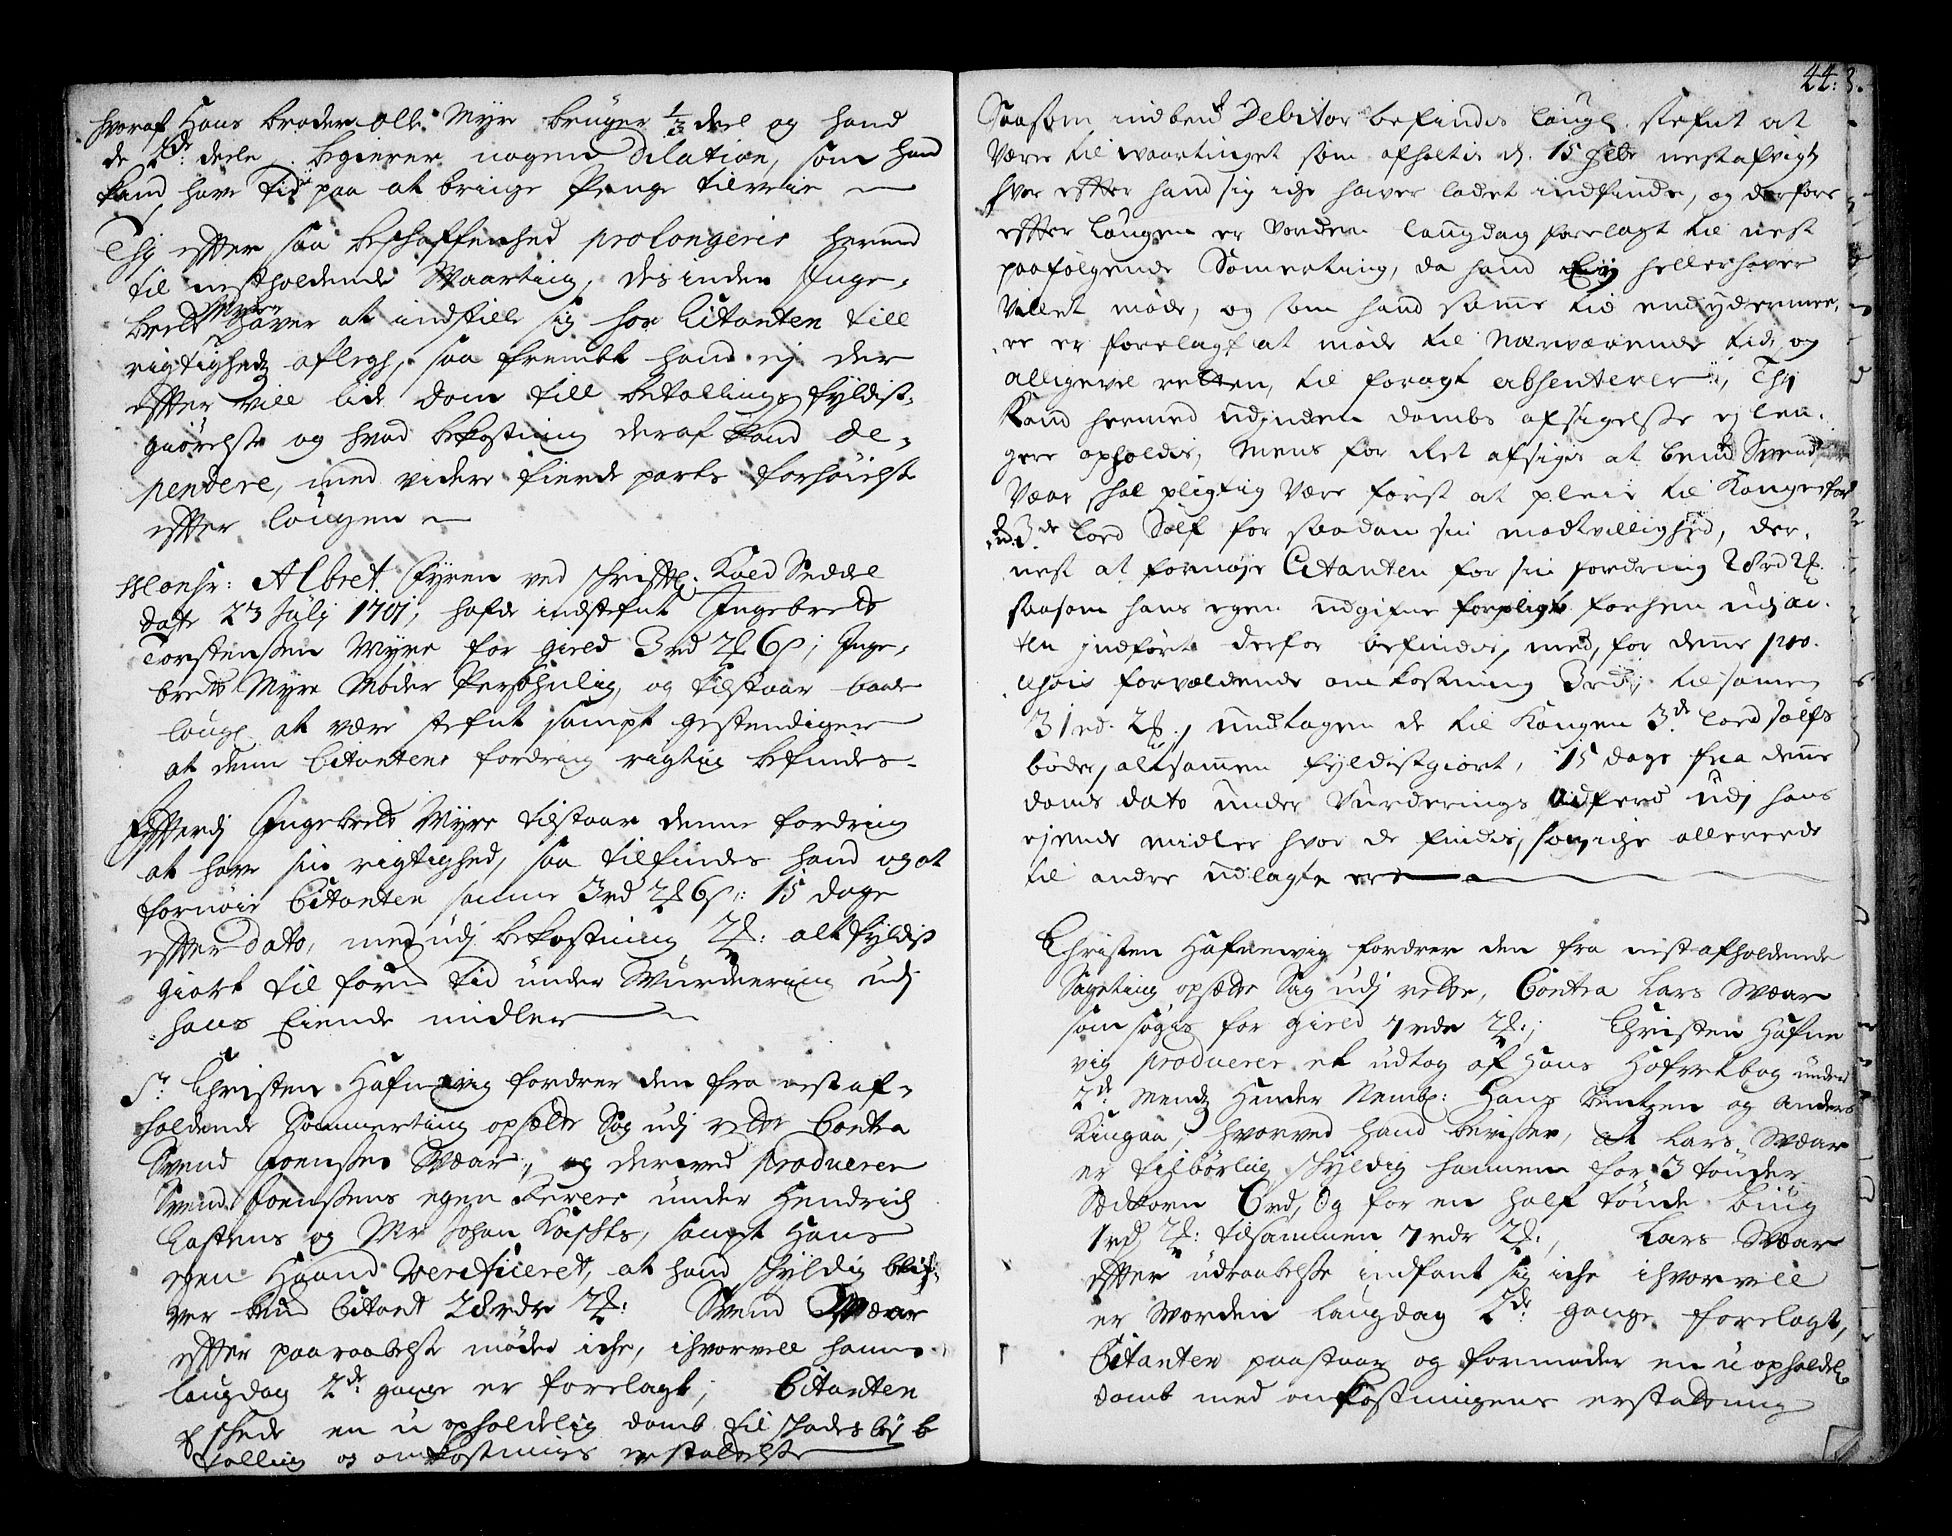 hvoraf Hans broder Olle Myre bruger 1/3 deel og hand
de 2de deele, begierer nogen dilation, som hand
kand have tid paa at bringe Penge tilveie
Thj effter saa beschaffenhed prolongeris hermed
til nestholdende Waarting, des inden Inge-
bret Myre haver at indstille sig hos Citanten till
rigtigheds aflegh, saa fremt hand ej der
effter vill lide dom till betallings fyldist-
giørelse og hvad bekostning deraf kand de-
pendere, med videre fiende parts forhøielse
effter lougen
Monsr: Albret Fyren ved schrifftl. Kald Seddel
date 23 Julj 1701, hafde indstefnt Ingebret
Torstensen Myre for gield 3rd 2 6s; Inge-
bret Myre Møder Persohnlig, og tilstaar baade
lougl at være stefnt sampt gestendiger
at denne Citantens fordring rigtig befindes.
Effterdj Ingebret Myre tilstaar denne fordring
at have sin rigtighed, saa tilfindes hand og at
fornøie Citanten samme 3rd 2 6s: 15 dage
effter dato, med udj bekostning 2: alt fyldist
giort til forn tid under Wurdering udj
hans Eiende midler
Sr Christen Hafnewig fordrer den fra nest af-
holdende Sommerting opsatte Sag udj rette Contra
Svend Joensen Wæar, og derved producerer
Svend Joensens egen under Hendrich
Castens og Mr Johan, sampt Hans
egen Haand Verificeret, at hand schyldig blif-
ver Citant 28rdr 2: Svend Wæar
effter paaraabelse møder iche, ihvorvell ham
laugdag 2de gange er forelagt; Citanten
eschede en u opholdelig domb til schades bes
talling og omkostnings erstattelse
44.
Saasom indben Debitor befindis lougl stefnt at
være til waartinget som afholtis d. 15 nestafvigt
hvor effter hand sig iche haver ladet indfinde, og derfore
effter Lougen er vorden lougdag forelagt til nest
paafølgende Somerting, da hand Eij heller haver
villet møde, og som hand samme tid end ydermee-
re er forelagt at møde til nærværende tid, og
alligevel retten, til foragt absenterer, Thj
kand hermed udj nden dombs afsigelse ej len-
gere opholdis, Mens for Ret afsigis at ben Svend
Wæar shal pligtig være først at pleie til Kongen for
3de lod Sølf for saadan sin modtvillighed, der-
nest at fornøje Citanten for sin fordring 28rd 2
saasom hans egen udgifne forpligt forhen udj ac-
ten jndført derfor befindis, med, for denne pro-
cessis forvoldende omkostning 3rd, tilsamen
31rd. 2, undtagen de til Kongen 3de lod sølfs
bøder, altsammen fyldistgiort, 15 dage fra denne
doms dato under Vurderings udferd udj hans
ejende midler hvor de findis, som iche allerede
til andre udlagte ere
Christen Hafnewig fordrer den fra nest afholdende
Sageting opsatte Sag udj rette, Contra Lars Wæar
som søgis for gield 7rdr 2:; Christen Hafne
vig producerer et udtog af Hans Hofvetbog under
2de Mends Hender Neml: Hans Bentzen og Anders
Kingaa, hvorved hand beviser, at Lars Wæar
er tilbørlig schyldig hannem for 3 tønder
Sædkorn 6rd, Og for en half tønde biug
1rd 2: tilsammen 7rdr 2:, Lars Wæar
effter udraabelse indfant sig iche ihvorvell
er worden laugdag 2de gange forelagt,
Citanten paastaar og formoder en u opholdel
domb med omkostningens erstatning